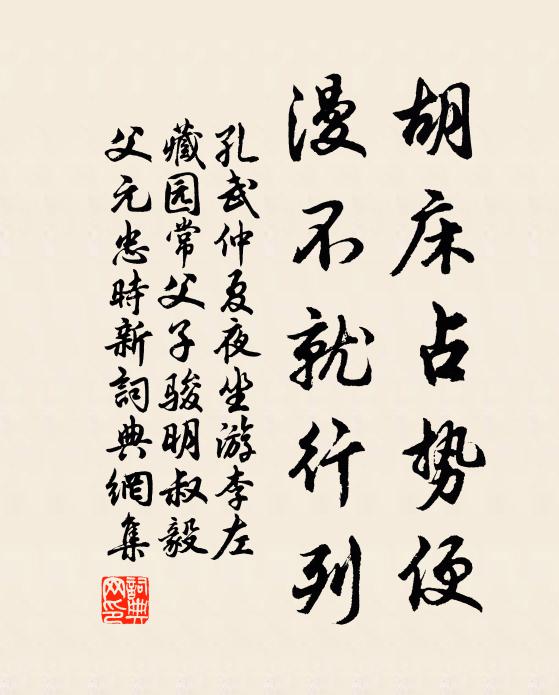 胡床占势便
漫不就行列
孔武仲夏夜坐游李左
藏园常父子骏明叔毅
父元忠時新詞典網集
詞典網印